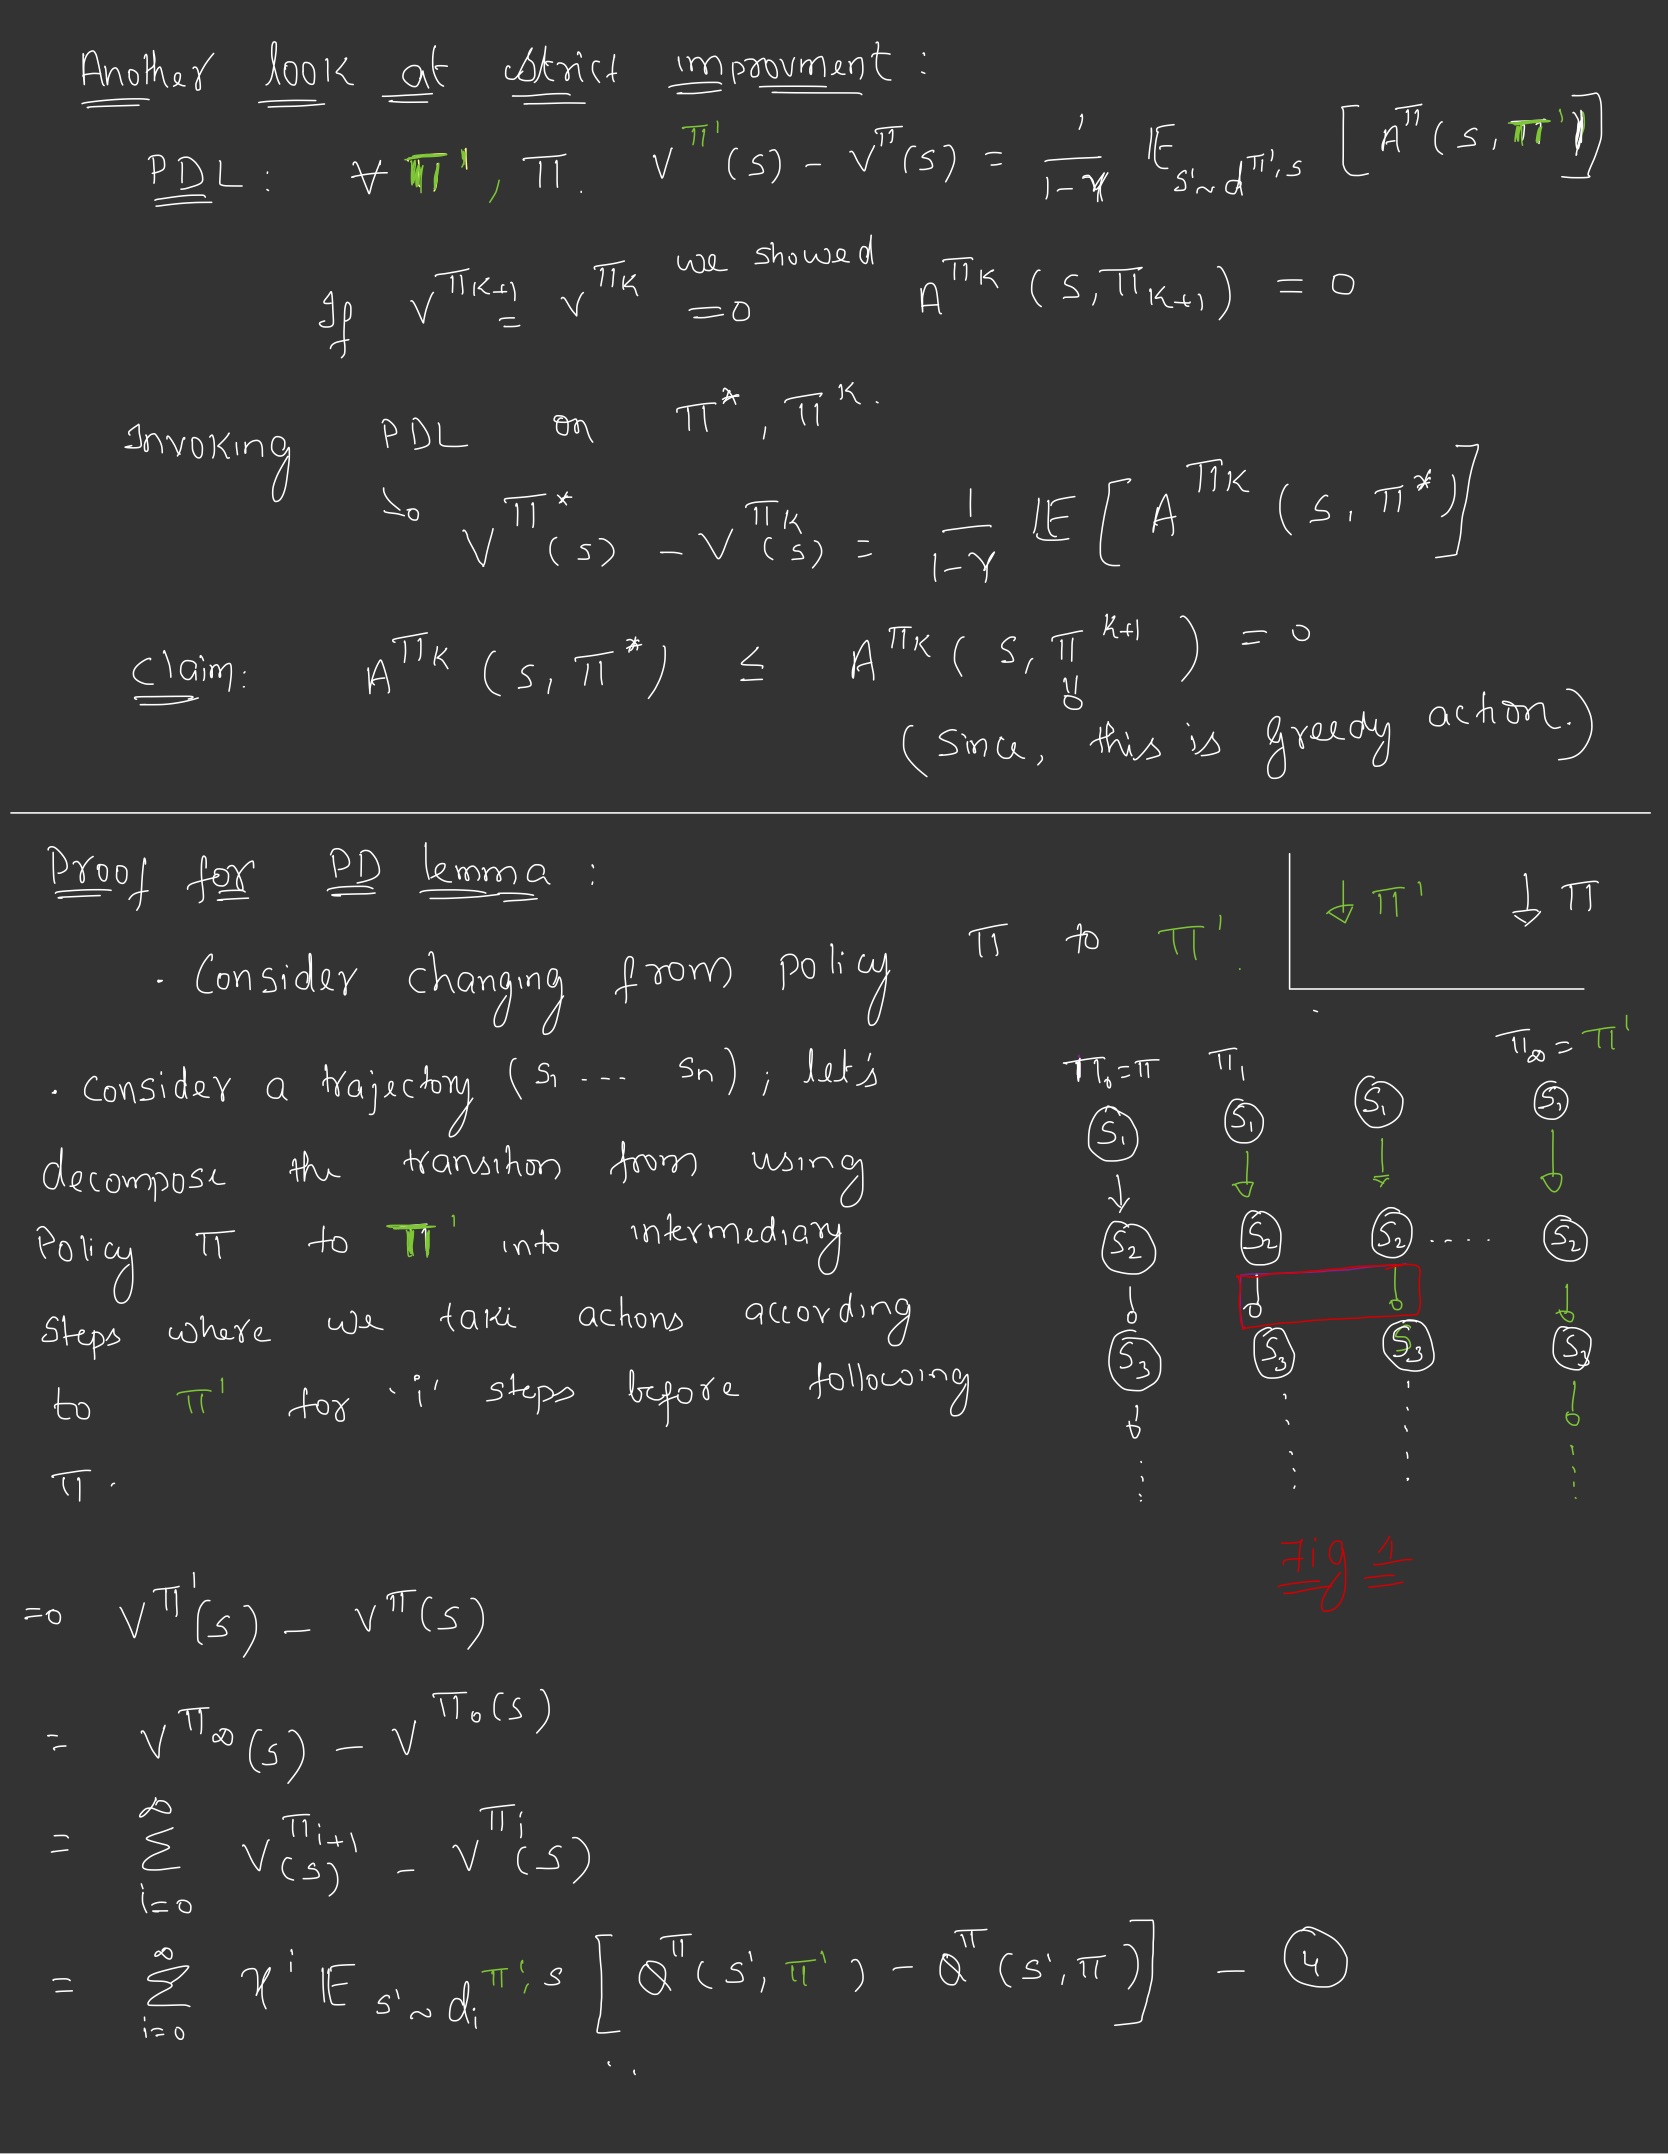 Another look at strict improvment :
PDL : ∀ π', π. V^π'(s) - V^π(s) = 1/(1-γ) E_{s'~d^{π',s}} [A^π(s, π')]
If V^{π_{k+1}} = V^{π_k} we showed => A^{π_k}(s, π_{k+1}) = 0
Invoking PDL on π*, π^k.
↳ V^{π*}(s) - V^{π_k}(s) = 1/(1-γ) E [A^{π_k}(s, π*)]
Claim: A^{π_k}(s, π*) ≤ A^{π_k}(s, π^{k+1}) = 0
(Since, this is greedy action.)
Proof for PD lemma :
↓ π' ↓ π
· Consider changing from policy π to π'.
· Consider a trajectory (s₁ ... sₙ); let's
decompose the transition from using
Policy π to π' into intermediary
steps where we take actions according
to π' for 'i' steps before following
π.
π₀ = π π₁ π_∞ = π'
S₁ S₁ S₁ S₁
S₂ S₂ S₂ ..... S₂
S₃ S₃ S₃ S₃
Fig 1
=> V^π'(s) - V^π(s)
= V^{π_∞}(s) - V^{π₀(s)}
= Σ_{i=0}^∞ V^{π_{i+1}}(s) - V^{π_i}(s)
= Σ_{i=0}^∞ γ^i E_{s'~d_i^{π',s}} [Q^π(s', π') - Q^π(s', π)] - ④